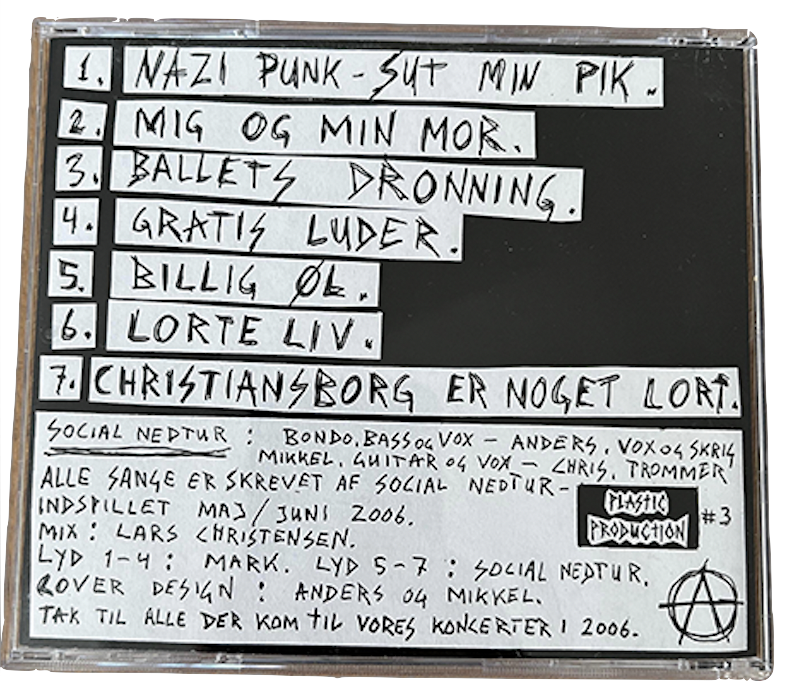 1. NAZI PUNK - SUT MIN PIK.
2. MIG OG MIN MOR.
3. BALLETS DRONNING.
4. GRATIS LUDER.
5. BILLIG ØL.
6. LORTE LIV.
7. CHRISTIANSBORG ER NOGET LORT.
SOCIAL NEDTUR : BONDO, BASS OG VOX - ANDERS, VOX OG SKRIG
MIKKEL, GUITAR OG VOX - CHRIS, TROMMER
ALLE SANGE ER SKREVET AF SOCIAL NEDTUR -
INDSPILLET MAJ/JUNI 2006.
PLASTIC
PRODUCTION #3
MIX: LARS CHRISTENSEN.
LYD 1-4: MARK. LYD 5-7: SOCIAL NEDTUR.
COVER DESIGN: ANDERS OG MIKKEL.
TAK TIL ALLE DER KOM TIL VORES KONCERTER I 2006.
A